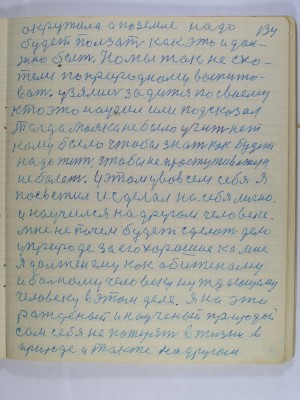 окружила а по земле надо 134
будет ползать как это и дол-
жно быть. Но мы так не схо-
тели по природному воспито-
вать. узялись за дитя по своему
кто это научил или подсказал
тогда мотка не было учить нет
кому было чтобы знать как будет
надо жить чтобы не простуживаться
не болеть. Я этому во всем себя я
посветил и сделал на себя лично.
и научился на другом человеке.
мне не почем будет сделать дело
у природе за его хорошие ка мне
я должен ему как обиженому
и больному человеку нуждающему
человеку в этом деле. Я на это
рожденый и наученый природой
сам себя не потерять в жизни в
природе и так же на другом.